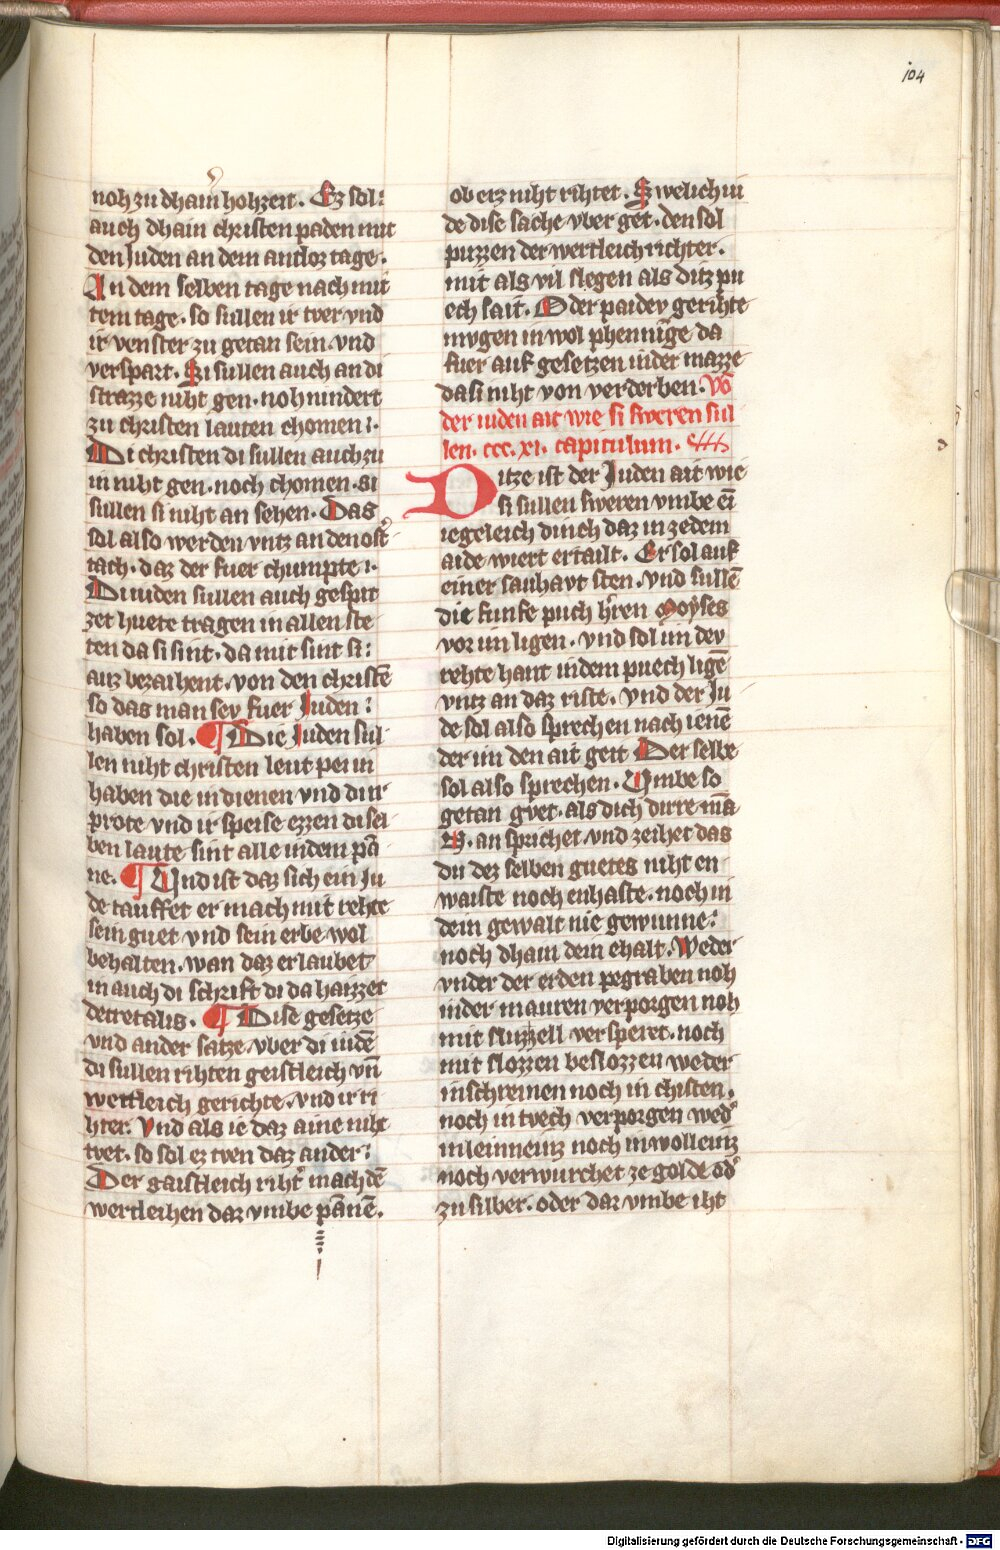 104
noh zu dhain hohzeit. Ez sol
auch dhain christen paden mit
den Juden an dem antloz tage.
An dem selben tage nach mit
tem tage. so sullen ir tver vnd
ir venster zu getan sein vnd
verspart. Si sullen auch an di
strazze niht gen. noh nindert
zu christen lauten chomen.
Di christen di sullen auch zu
in niht gen. noch chomen. si
sullen si niht an sehen. Das
sol also werden vntz an den ost
tach. daz der fuer chumpte.
Di iuden sullen auch gespit
zet huete tragen in allen ste
ten da si sint. da mit sint si
auz bezaihent. von den christē
so das man sey fuer Juden
haben sol. Die Juden sul
len niht christen leut pei in
haben die in dienen vnd dir
prote vnd ir speise ezzen di sel
ben laute sint alle in dem pā
ne. Vnd ist daz sich ein Ju
de tauffet er mach mit rehte
sein guet vnd sein erbe wol
behalten. wan daz erlaubet
in auch di schrift di da haizzet
decretalis. Dise gesetze
vnd ander satze vber di iudē
di sullen rihten geistleich vn̄
wertleich gerichte. vnd ir ri
hter. Vnd als ie daz aine niht
tvet. so sol ez tven daz ander
Der gaistleich riht' mach dē
wertleihen dar vmbe pānē.
ob erz niht rihtet. Swelich iu
de dise sache vber get. den sol
puzzen der wertleich richter.
mit als vil slegen als ditz pu
ech sait. Oder paidev gerihte
mvgen in wol phenninge da
fuer auf gesetzen in der mazze
da si niht von verderben. Vō
der iuden ait wie si sweren sul
len. ccc. xi. capitulum.
Ditze ist der Juden ait wie
si sullen sweren vmbe ei
iegeleich dinch daz in ze dem
aide wiert ertailt. Er sol auf
einer sauhavt sten. vnd sullē
die funfe puch h'ren Moyses
vor im ligen. vnd sol im dev
rehte hant in dem puech ligē
vntz an daz riste. Vnd der Ju
de sol also sprechen nach ienē
der im den ait geit Der selbe
sol also sprechen. Vmbe so
getan gvet. als dich dirre mā
N. an sprichet vnd zeihet das
du dez selben guetes niht en
waiste noch enhaste. noch in
dein gewalt nie gewunne.
noch dhain dein ehalt. Weder
vnder der erden pegraben noh
in der mauren verporgen noh
mit sluzzell versperet. noch
mit slozzen beslozzen weder
in schreinen noch in chisten.
noch in tvech verporgen wed'
in leinneinz noch in wolleinz
noch verwurchet ze golde od'
zu silber. oder dar vmbe iht
Digitalisierung gefördert durch die Deutsche Forschungsgemeinschaft - DFG